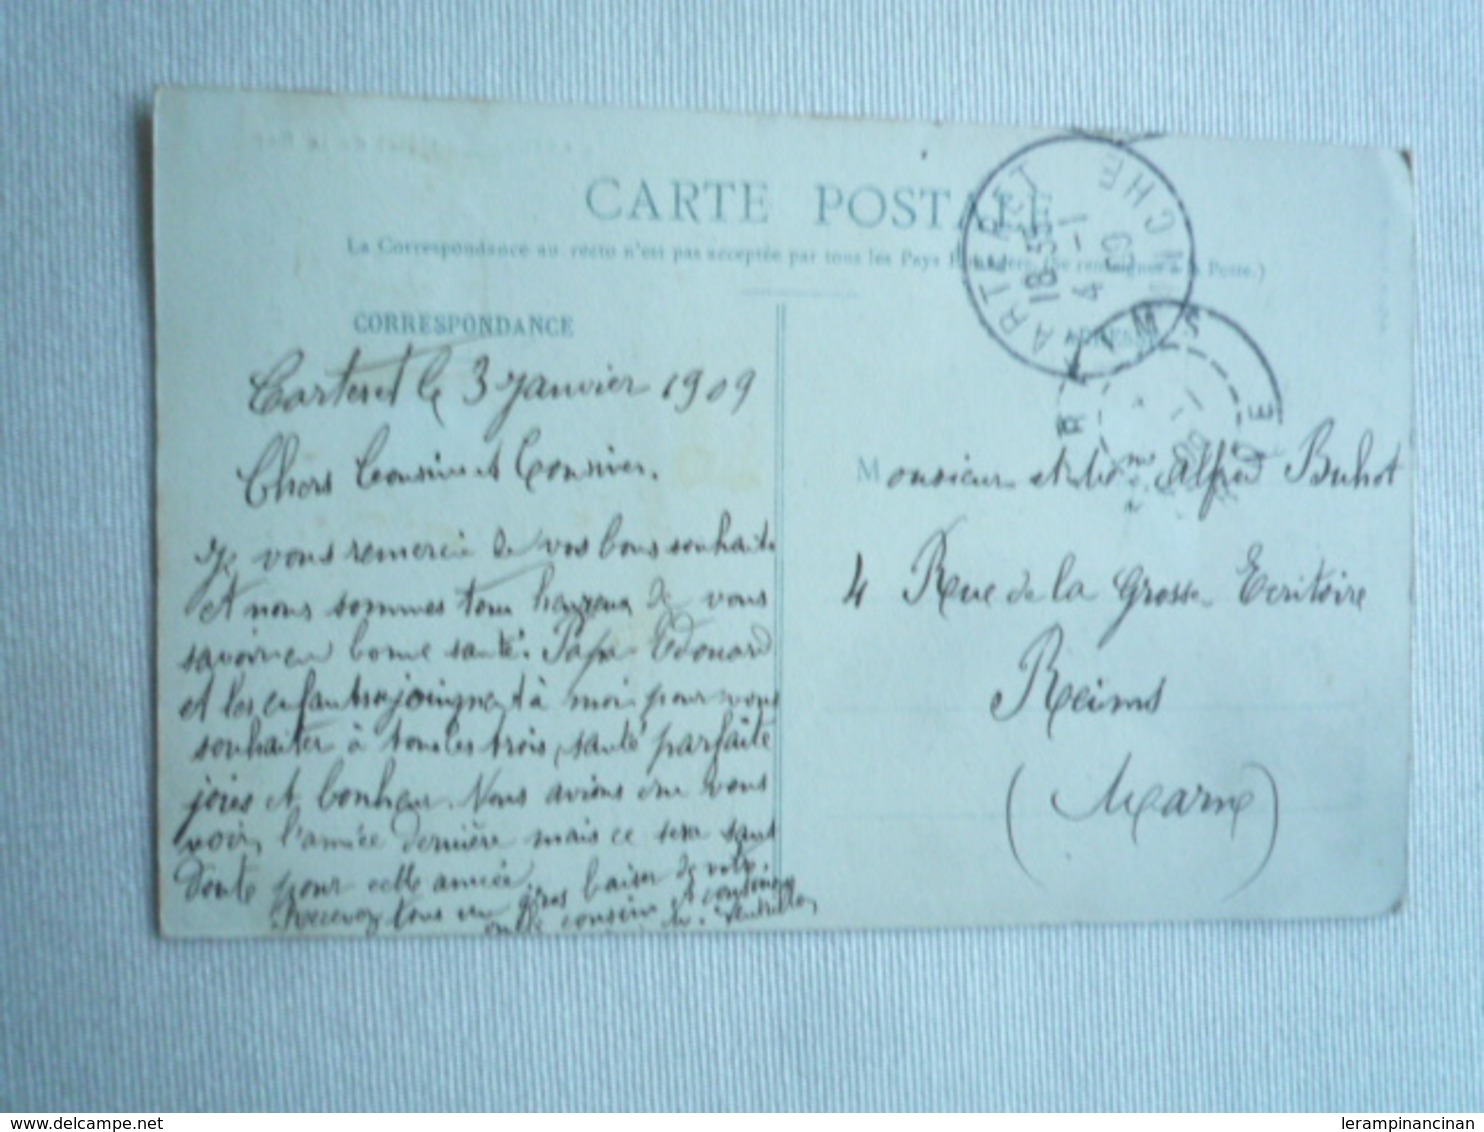 CARTE POSTALE
La Correspondance au recto n'est pas acceptée par tous les Pays (Se renseigner à la Poste.)
CORRESPONDANCE
Carteret le 3 Janvier 1909
Chers Cousin et Cousine.
Je vous remercie de vos bons souhaits
et nous sommes tous heureux de vous
savoir en bonne santé. Papa Edouard
et les enfants se joignent à moi pour vous
souhaiter à tous les trois, santé parfaite
joies et bonheur. Nous avions cru vous
voir, l'année dernière mais ce sera sans
doute pour cette année
Recevez tous un gros baiser de votre
cousin et cousine
CARTERET
MANCHE
18-5
4-1
09
REIMS
ADRESSE
Monsieur et Me Alfred Buhot
4 Rue de la Grosse Ecritoire
Reims
(Marne)
www.delcampe.net
lerampinancinan